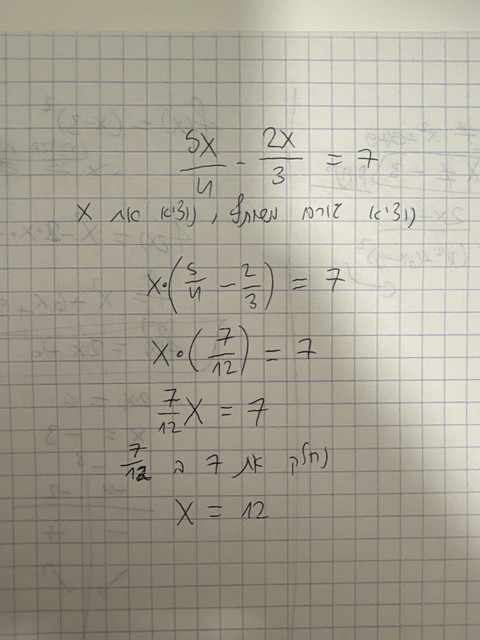 5x/4 - 2x/3 = 7
נוציא גורם משותף, נוציא את x
x·(5/4 - 2/3) = 7
x·(7/12) = 7
7/12 x = 7
נחלק את 7 ב 7/12
x = 12